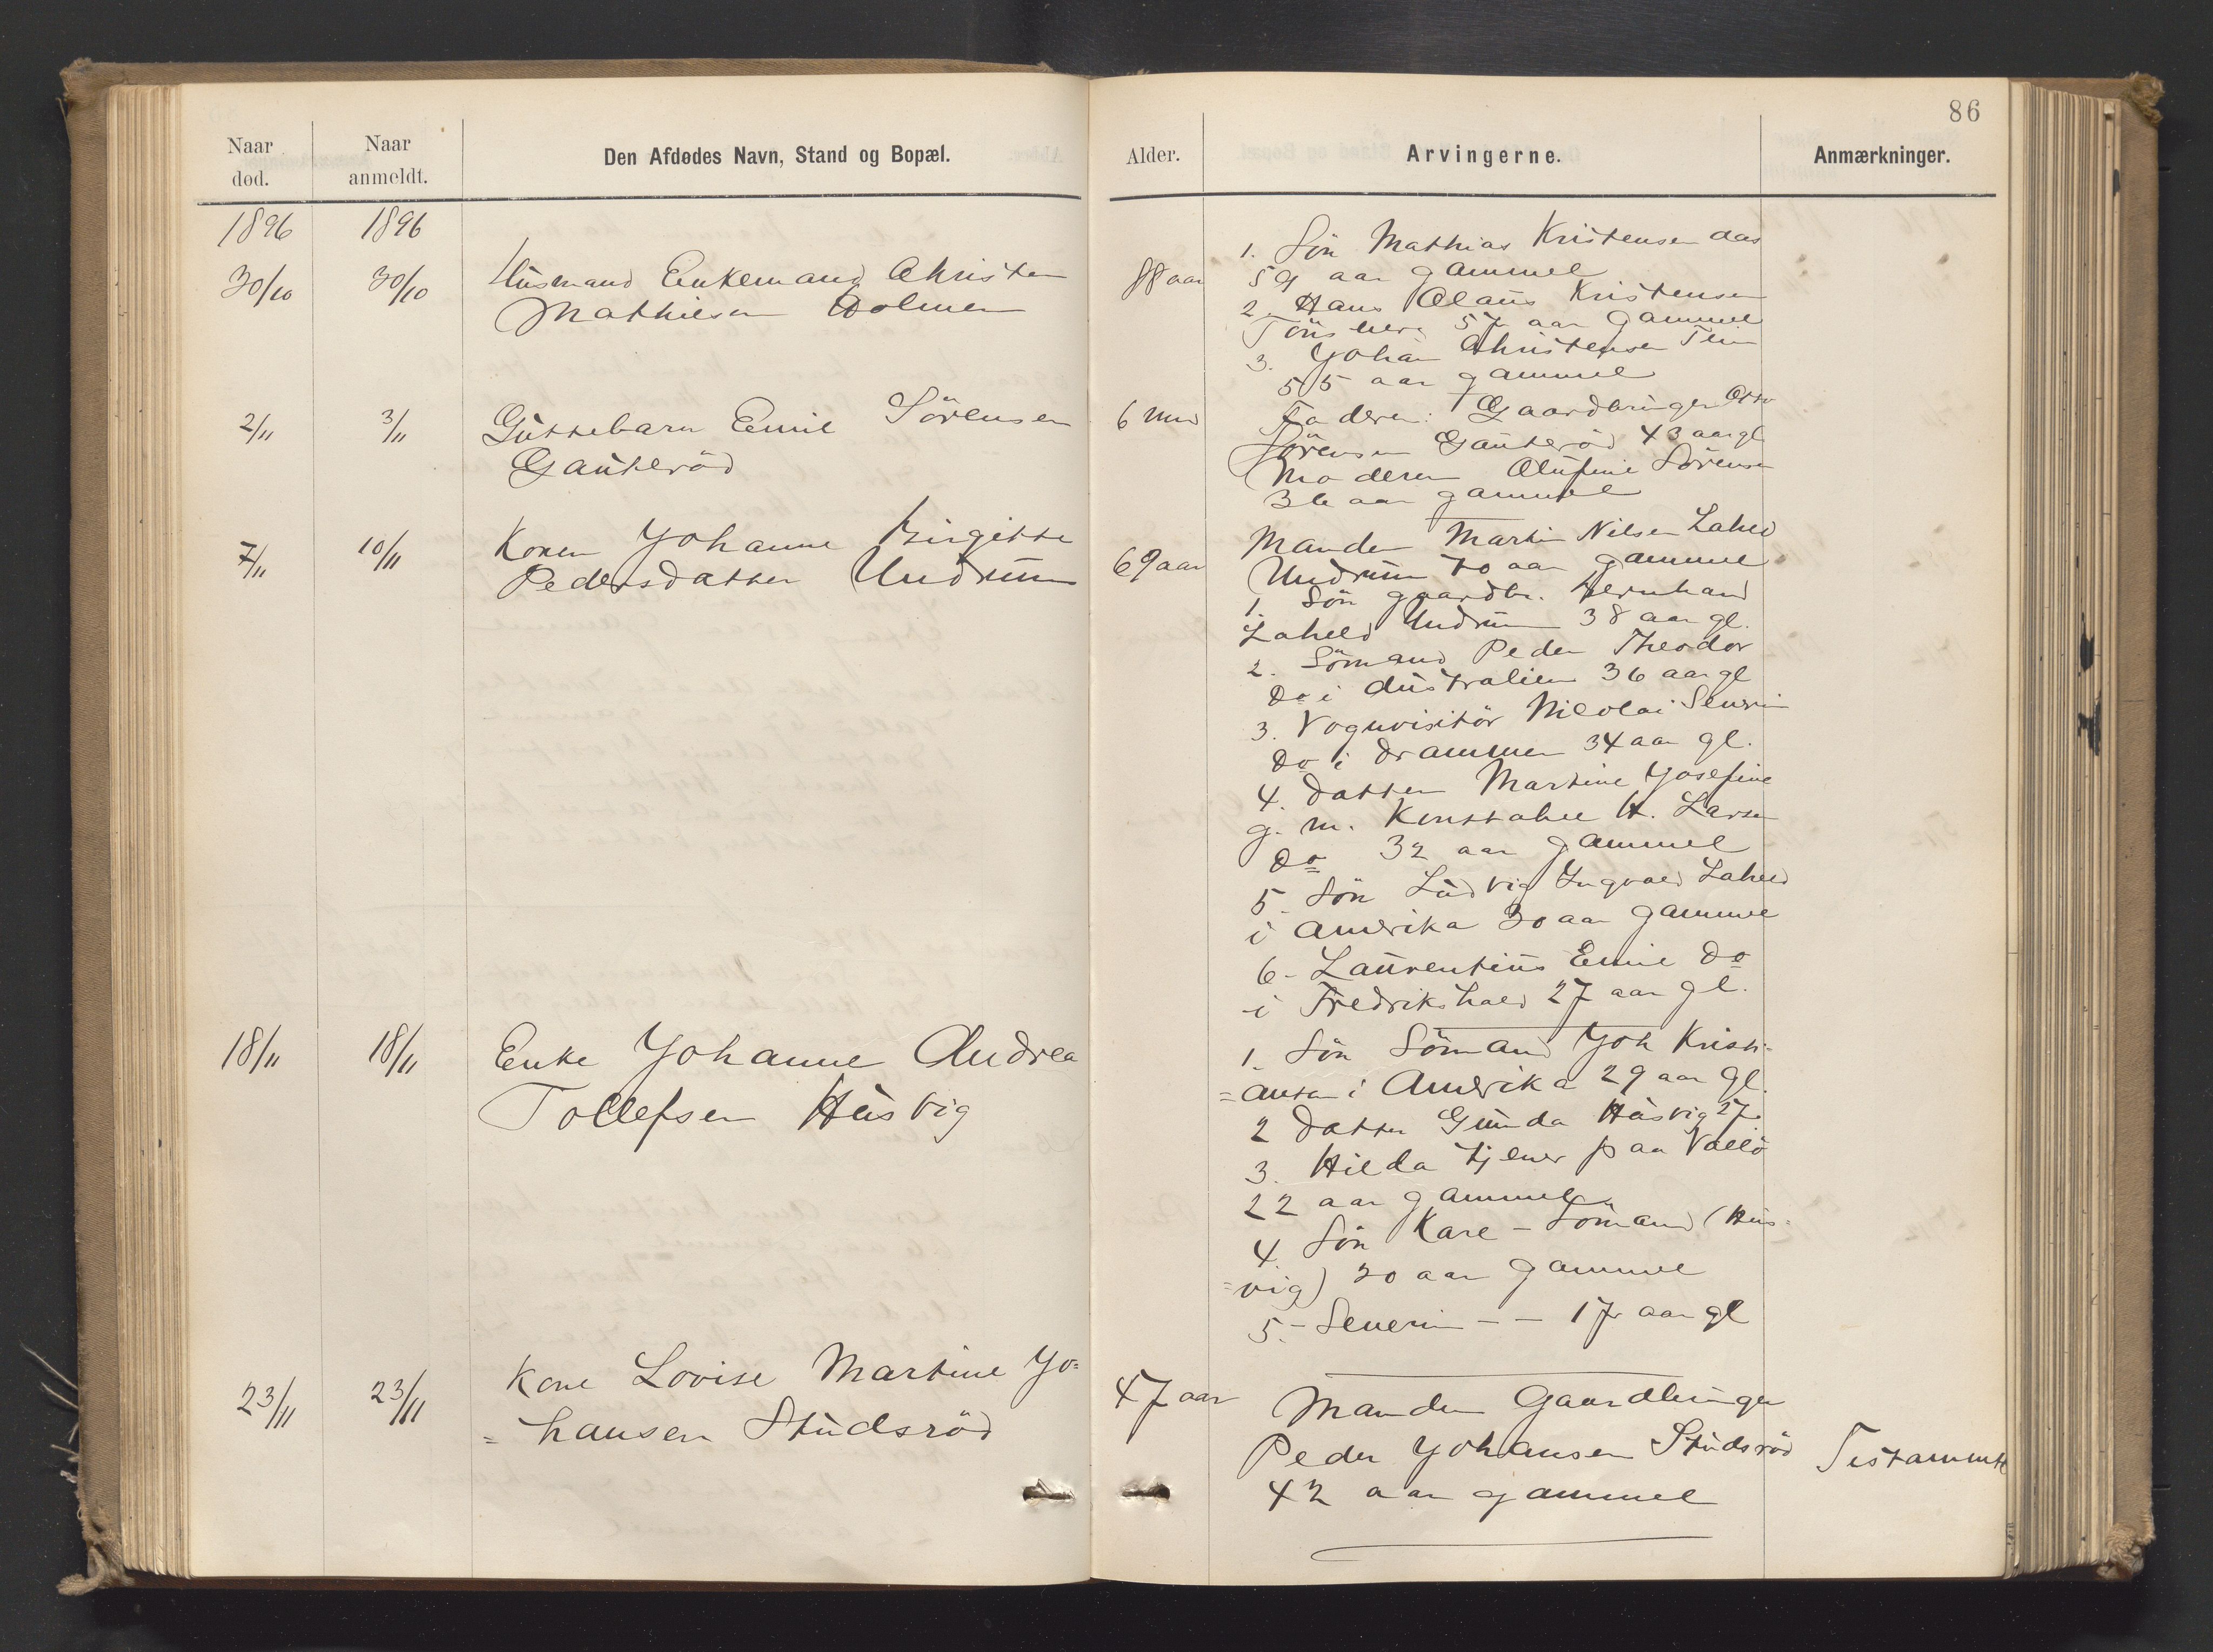 86
Naar død.
Naar anmeldt.
Den Afdødes Navn, Stand og Bopæl.
Alder.
Arvingerne.
Anmærkninger.
1896 1896
30/10 30/10 Husmand Enkemand Christen
Mathiesen Holmen
88 aar
1. Sön Mathias Kristensen Aas
59 aar gammel
2. Hans Olaus Kristensen
Tönsberg 57 aar gammel
3. Johan Christensen
55 aar gammel
2/11 3/11 Guttebarn Emil Sörensen
Gauteröd
6 mnd
Faderen: Gaardbruger Otto
Sörensen Gauteröd 43 aar gl
Moderen Olufine Sörensen
36 aar gammel
7/11 10/11 Konen Johanne Birgitte
Pedersdatter Undrum
69 aar
Manden Martin Nilsen Laheld
Undrum 70 aar gammel
1. Sön gaardbr. Bernhard
Laheld Undrum 38 aar gl.
2. Sömand Peder Theodor
Do i Australien 36 aar gl
3. Vognvisitör Nicolai Severin
Do i Drammen 34 aar gl.
4. Datter Martine Josefine
g. m. Konstabel H. Larsen
Do 32 aar gammel
5 - Sön Ludvig Ingvald Laheld
i Amerika 30 aar gammel
6 - Laurentius Emil Do
i Fredrikshald 27 aar gl.
18/11 18/11 Enke Johanne Andrea
Tollefsen Husvig
1. Sön Sömand Joh Kristi-
=ansen i Amerika 29 aar gl.
2 Datter Gunda Husvig 27.
3. Hilda tjener paa Vallö
22 aar gammel
4. Sön Karl - Sömand (Hus-
=vig) 20 aar gammel
5. - Severin - - 17 aar gl
23/11 23/11 Kone Lovise Martine Jo=
=hansen Studsröd
47 aar
Manden Gaardbruger
Peder Johansen Studsröd
42 aar gammel
Testamente